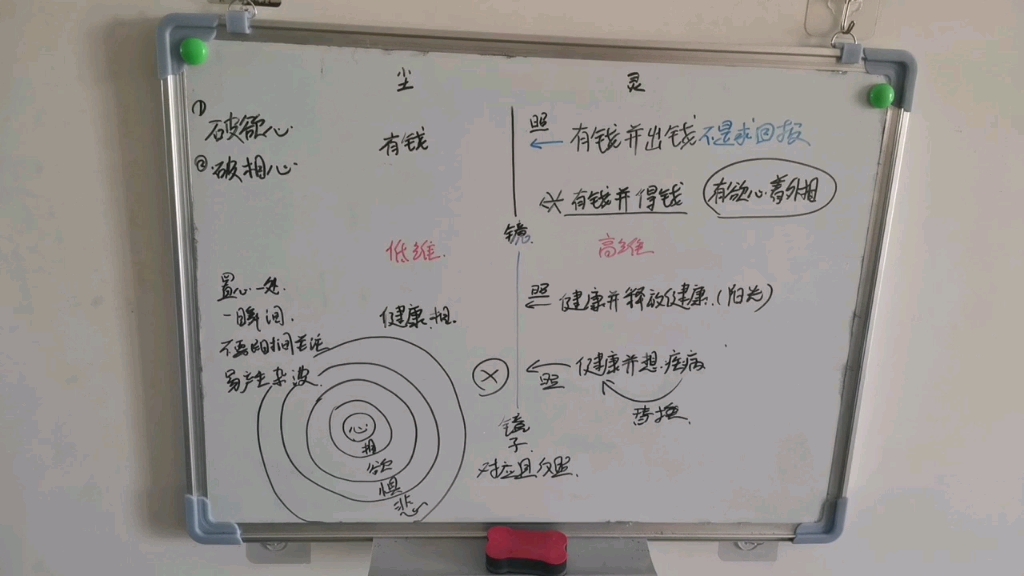 尘 灵
① 破欲心 有钱 照 ← 有钱并出钱 不是求回报
② 破相心
← 有钱并得钱 有欲心着外相
镜
低维 高维
置心一处
一瞬间 健康相 照 ← 健康并释放健康(阳光)
不要时间关注
易产生杂波 × ← 照 健康并想疾病
替换
心
相
欲
惧
悲
镜子
对应且反照